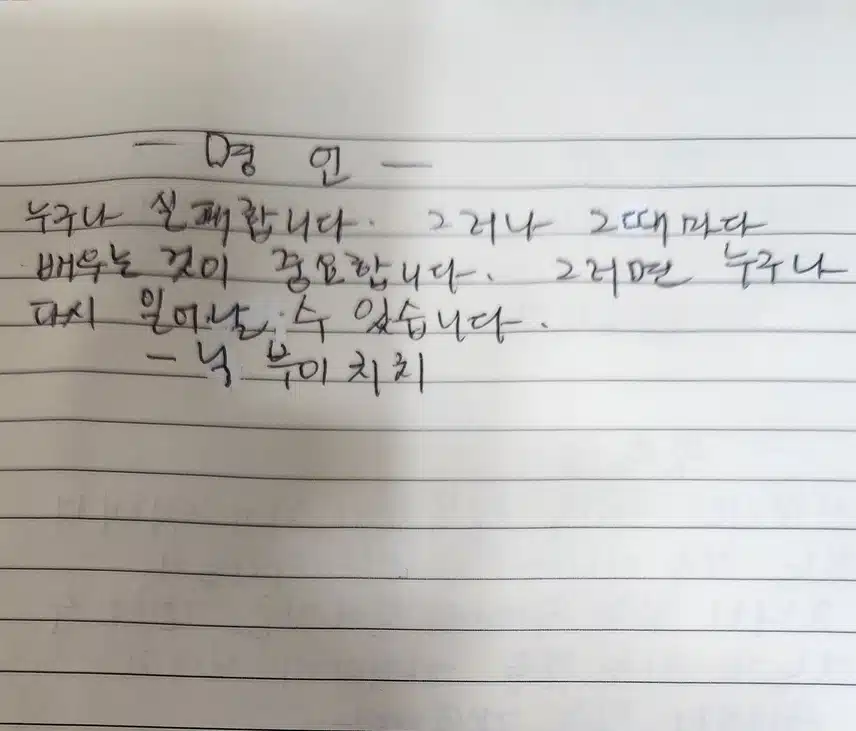 - 명 인 -
누구나 실패합니다. 그러나 그때마다
배우는 것이 중요합니다. 그러면 누구나
다시 일어날 수 있습니다.
- 닉 부이치치